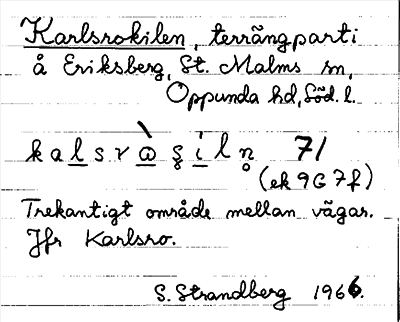 Karlsrokilen, terrängparti
å Eriksberg, St. Malms sn,
Oppunda hd, Söd. l.
kalsrὼşiln̥ 71
(ek 9G 7f)
Trekantigt område mellan vägar.
Jfr Karlsro.
S. Strandberg 1966.